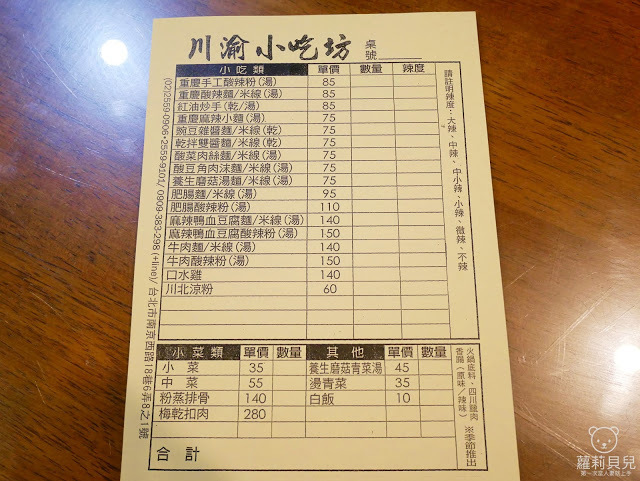 川渝小吃坊 桌號
小吃類 單價 數量 辣度
重慶手工酸辣粉(湯) 85
重慶酸辣麵/米線(湯) 85
紅油炒手(乾/湯) 85
重慶麻辣小麵(湯) 75
豌豆雜醬麵/米線(乾) 75
乾拌雙醬麵/米線(乾) 75
酸菜肉絲麵/米線(湯) 75
酸豆角肉沫麵/米線(湯) 75
養生磨菇湯麵/米線(湯) 75
肥腸麵/米線(湯) 95
肥腸酸辣粉(湯) 110
麻辣鴨血豆腐麵/米線(湯) 140
麻辣鴨血豆腐酸辣粉(湯) 150
牛肉麵/米線(湯) 140
牛肉酸辣粉(湯) 150
口水雞 140
川北涼粉 60
小菜類 單價 數量
小菜 35
中菜 55
粉蒸排骨 140
梅乾扣肉 280
其他 單價 數量
養生磨菇青菜湯 45
燙青菜 35
白飯 10
合計
請註明辣度：大辣、中辣、中小辣、小辣、微辣、不辣
火鍋底料、四川臘肉
香腸(原味/辣味) ※季節推出
(02)2559-0906•2559-9101/ 0909-383-298 (+line)/ 台北市南京西路18巷6弄8之1號
蘿莉貝兒